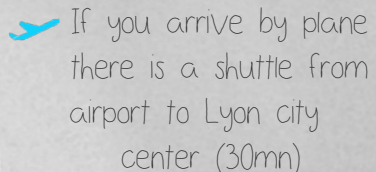 If you arrive by plane
there is a shuttle from
airport to Lyon city
center (30mn)